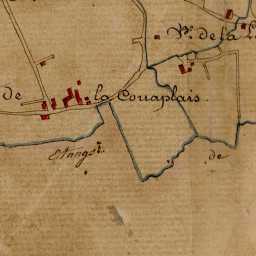 Vo. de la
de la Couaplais.
Etangs.
de